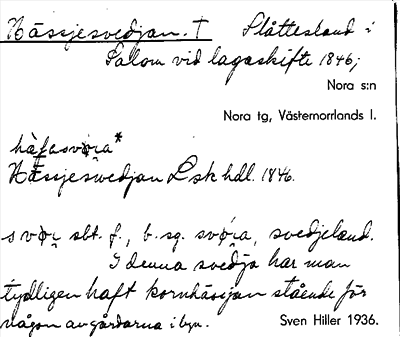 Hässjesvedjan. † Slåttesland i
Salom vid lagaskifte 1846;
Nora s:n
Nora tg, Västernorrlands l.
Hässjeswedjan Lskhdl. 1846.
svør sbt. f., b. sg. svøra, svedjeland.
I denna svedja har man
tydligen haft kornhässjan stående för
någon av gårdarna i byn. Sven Hiller 1936.